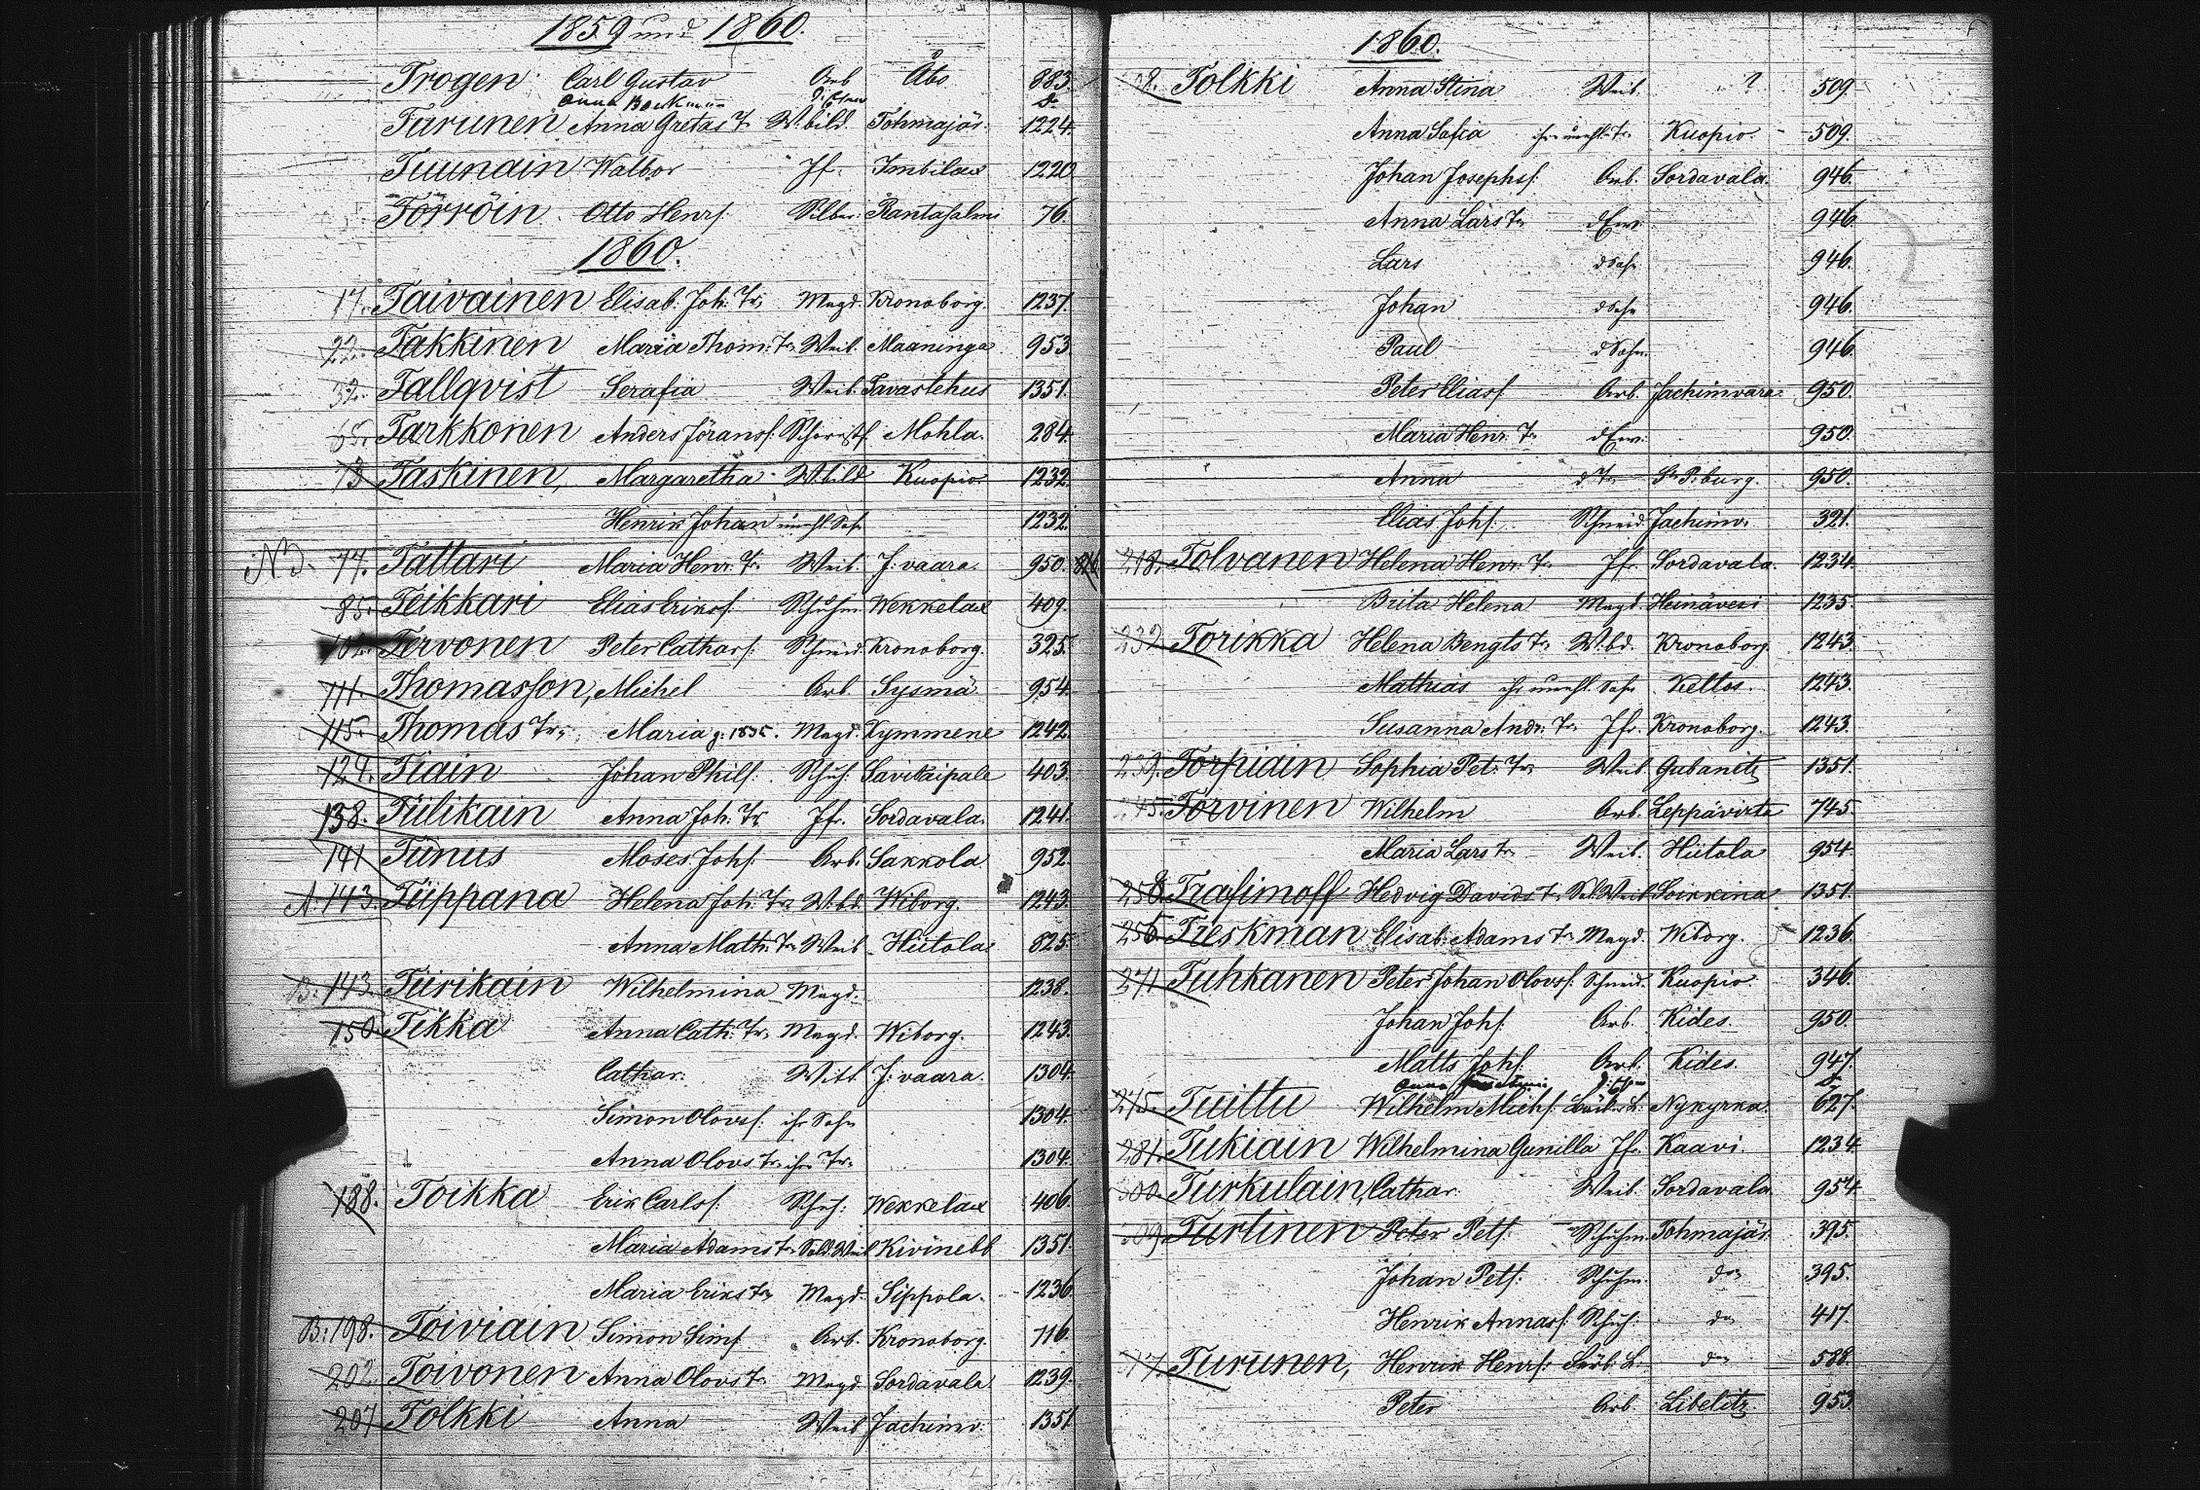 1859 und 1860.
Trogen Carl Gustav Arb Åbo 883.
Anna
Turunen Anna Gretas Tr. W.bild. Tohmajär. 1224.
Tuunain Walbor Jf. Imbilax 1220
Törröin Otto Henrs. Silber: Rantasalmi 76.
1860.
17. Taivainen Elisab. Joh. Tr. Magd. Kronoborg. 1237.
22. Takkinen Maria Thom. Tr. Weib. Maaninga 953
32. Tallqvist Serafia Weib. Tavastehus 1351.
65. Tarkkonen Anders Jörans. Schornstf. Mohla. 284.
73 Taskinen, Margaretha W.bild Kuopio 1232.
Henrik Johan unehl. Sohn 1232.
77. Tattari Maria Henr. Tr. Weib. J:vaara. 950.
85. Teikkari Elias Eriks. Schuhm Wekkelax 409.
102. Tervonen Peter Cathars. Schneid. Kronoborg. 325.
111. Thomasson, Michel Arb. Sysmä 954.
115. Thomas Tr. Maria g. 1835. Magd. Kymmene 1242.
124. Tiain Johan Phils. Schuh. Savitaipale 403.
138. Tiilikain Anna Joh. Tr. Jf. Sordavala. 1241.
141 Tiinus Moses Johs. Arb. Sakkola 952.
A. 143. Tiippana Helena Joh. Tr. W.bd. Wiborg. 1243.
Anna Math. Tr. Weib Hiitola 825.
B. 143. Tiirikain Wilhelmina Magd. 1238.
150. Tikka Anna Cath. Tr. Magd. Wiborg. 1243.
Cathar. Witt. J:vaara. 1304.
Simon Olovs. ihr Sohn 1304.
Anna Olovs Tr. ihre Tr. 1304.
188. Toikka Erik Carls. Schuh. Wekkelax 406.
Maria Adams Tr. Sold. Weib Kivinebb 1351.
Maria Eriks Tr. Magd. Sippola. 1236.
B: 198. Toiviain Simon Sims. Arb. Kronoborg. 716.
202. Toivonen Anna Olovs Tr. Magd Sordavala 1239.
207 Tolkki Anna Weib Jachimv. 1351
1860.
8. Tolkki Anna Stina Weib. ? 509.
Anna Sofia ihre unehl. Tr. Kuopio 509.
Johan Josephs. Arb. Sordavala. 946.
Anna Lars Tr. d Frau 946.
Lars d Sohn 946.
Johan d Sohn 946.
Paul d Sohn. 946.
Peter Elias. Arb. Jachimvara. 950.
Maria Henr. Tr. d Frau. 950.
Anna d Tr. St. P:burg. 950.
Elias Johs. Schneid. Jachimv. 321.
218. Tolvanen Helena Henr. Tr. Jfr. Sordavala. 1234.
Brita Helena Magd. Heinävesi 1235.
232. Torikka Helena Bengts Tr. W.bd. Kronoborg. 1243.
Mathias ihr unehl. Sohn Keltos. 1243.
Susanna Andr. Tr. Jfr. Kronoborg. 1243.
239. Torpiain Sophia Pet. Tr. Weib Gubanitz 1351.
245. Torvinen Wilhelm Arb. Leppävirta 745.
Maria Lars Tr. Weib. Hiitola 954.
250. Trafimoff Hedvig Davids Tr. Sol. Weib Soikkina 1351.
256. Treskman Elisab. Adams Tr. Magd. Wiborg. 1236.
271 Tuhkanen Peter Johan Olovs. Schneid. Kuopio 346.
Johan Johs. Arb. Kides. 950.
Matts Johs. Arb. Kides. 947.
Anna
275. Tuittu Wilhelm Michs. Nykyrka. 627.
281. Tukiain Wilhelmina Gunilla Jfr. Kaavi. 1234.
300. Turkulain, Cathar. Weib. Sordavala 954
309. Turtinen Peter Pets. Schuhm. Tohmajär. 395.
Johan Pets. Schuhm. do 395.
Henrik Annas. Schuh. do 417.
17. Turunen, Henrik Henrs. Färb. L. do 588.
Peter Arb. Libelitz. 953.